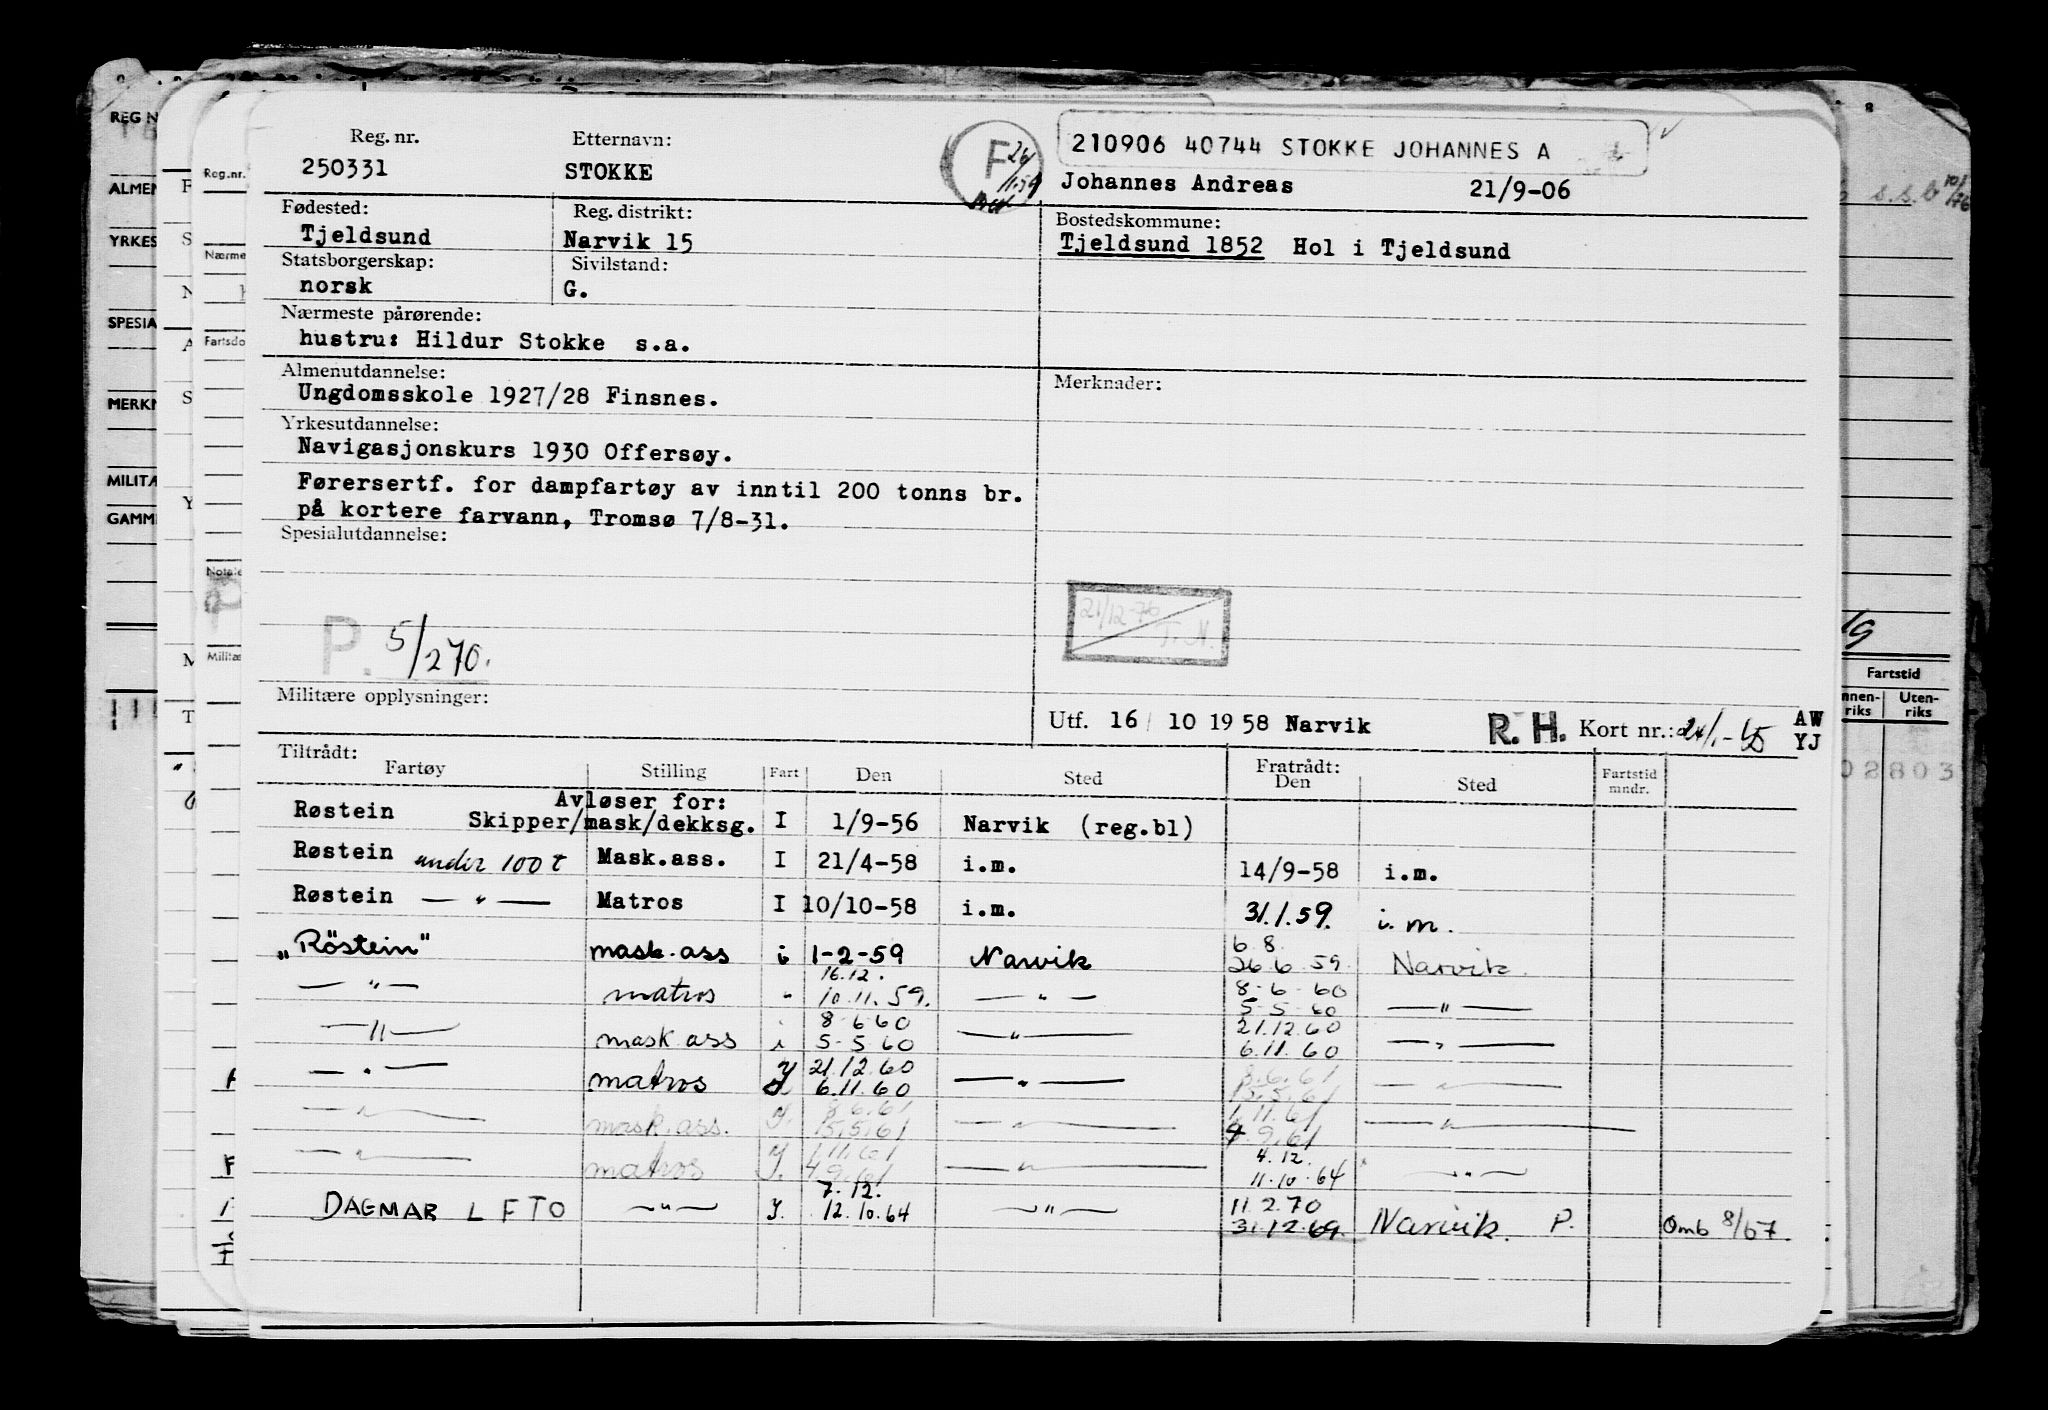 Reg. nr. Etternavn:
210906 40744 STOKKE JOHANNES A
250331 STOKKE F 26/1.59 Johannes Andreas 21/9-06
Fødested: Reg. distrikt: Bostedskommune:
Tjeldsund Narvik 15 Tjeldsund 1852 Hol i Tjeldsund
Statsborgerskap: Sivilstand:
norsk G.
Nærmeste pårørende:
hustru: Hildur Stokke s.a.
Almenutdannelse: Merknader:
Ungdomsskole 1927/28 Finsnes.
Yrkesutdannelse:
Navigasjonskurs 1930 Offersøy.
Førersertf. for dampfartøy av inntil 200 tonns br.
på kortere farvann, Tromsø 7/8-31.
Spesialutdannelse:
21/12-76
T. N.
P. 5/270.
Militære opplysninger:
Utf. 16/ 10 1958 Narvik R. H. Kort nr.: AW
YJ
Tiltrådt: Fratrådt:
Fartøy Stilling Fart Den Sted Den Sted Fartstid mndr.
Avløser for:
Røstein Skipper/mask/dekksg. I 1/9-56 Narvik (reg.bl)
Røstein under 100 t Mask.ass. I 21/4-58 i.m. 14/9-58 i.m.
Røstein — " — Matros I 10/10-58 i.m. 31.1.59. i.m.
"Röstein" mask.ass i 1-2-59 Narvik 6.8. 26.6.59. Narvik.
— " — matros " 16.12. 10.11.59. — " — 8-6-60 5-5-60 — " —
— " — mask ass i 8-6-60 5-5-60 — " — 21.12.60 6.11.60 — " —
— " — matros Y 21.12.60 6.11.60 — " — 8.6.61 15.5.61 — " —
— " — mask.ass. Y. 8.6.61 15.5.61 — " — 1.11.61 4.9.61 — " —
— " — matros Y. 1.11.61 4.9.61 — " — 4.12. 11.10.64 — " —
DAGMAR LFTO — " — Y. 7.12. 12.10.64 — " — 11.2.70 31.12.69. Narvik. P. Omb 8/67
REG N
ALMEN
YRKES
SPESIA
MERKN
MILITÆ
GAMME
Reg.nr.
Nærme
Fartsdo
Notate
Militæ
s.s.b 10/76
Fartstid
nnen-riks Uten-riks
02803